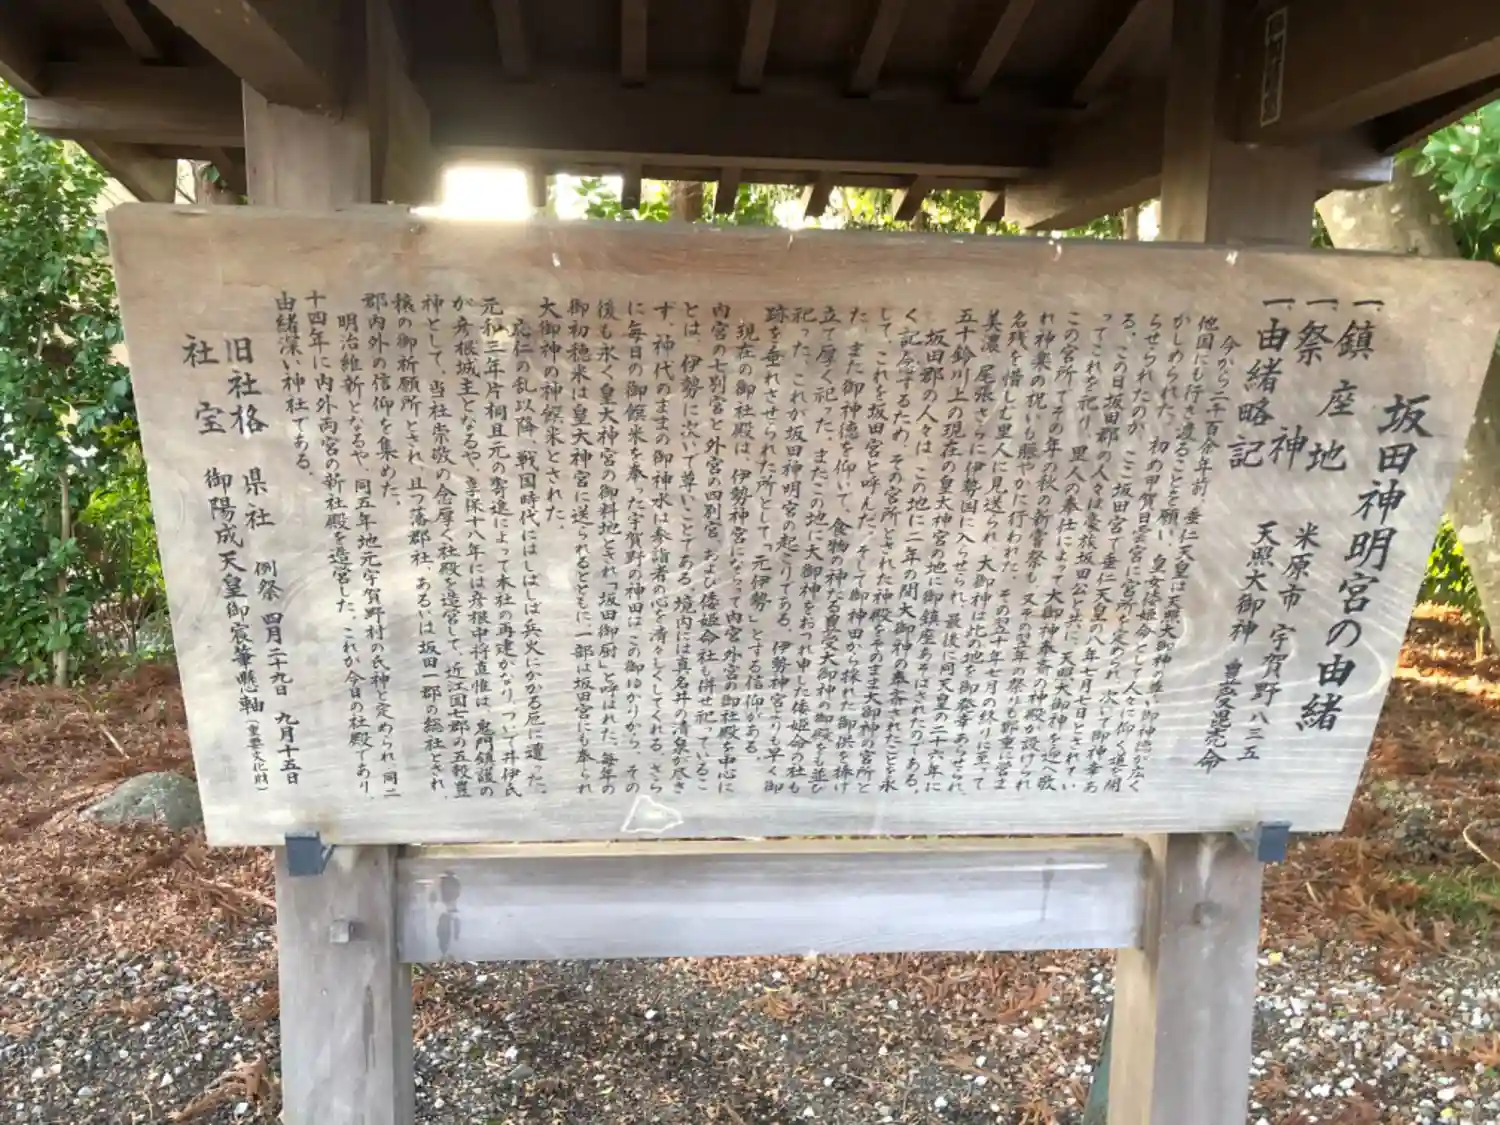 坂田神明宮の由緒
一、鎮座地 米原市宇賀野八三五
一、祭神 天照大御神 豊受毘売命
一、由緒略記
今から二千百余年前、垂仁天皇は天照大御神の尊い御神徳が広く
他国にも行き渡ることを願い、皇女倭姫命として人々に仰ぐ道を開
かしめられた。初め甲賀日雲宮に宮所を定められ、次いで御神幸あ
らせられたのが、ここ坂田宮で垂仁天皇の八年七月七日とされてい
る。この日坂田郡の人々は豪族坂田公と共に、天照大御神を迎へ敬
ってこれを祀り、里人の奉仕によって大御神奉斎の神殿が設けられ
この宮所でその年の秋の新嘗祭も、又その翌年の祭りも鄭重に営ま
れ神楽の祝いも賑やかに行われた。その翌十年七月の終りに至って
名残を惜しむ里人に見送られ、大御神は此の地を御発幸あらせられ、
美濃、尾張さらに伊勢国に入らせられ、最後に同天皇の二十六年に
五十鈴川上の現在の皇大神宮の地に御鎮座あそばされたのである。
坂田郡の人々は、この地に二年の間大御神の奉斎されたことを永
く記念するため、その宮所とされた神殿をそのまま大御神の宮所と
して、これを坂田宮と呼んだ。そして御神田から採れた御供を捧げ
た。また御神徳を仰いで、食物の神たる豊受大御神の御殿をも並び
立て厚く祀った。またこの地に大御神をおつれ申した倭姫命の社も
祀った。これが坂田神明宮の起こりである。伊勢神宮よりも早く御
跡を垂れさせられた所として「元伊勢」とする信仰がある。
現在の御社殿は、伊勢神宮にならって内宮外宮の御社殿を中心に
内宮の七別宮と外宮の四別宮、および倭姫命社も併せ祀っているこ
とは、伊勢に次いで尊いことである。境内には真名井の清泉が尽き
ず、神代のままの御神水は参詣者の心を清々しくしてくれる。さら
に毎日の御饌米を奉った宇賀野の神田はこの御ゆかりから、その
後も永く皇大神宮の御料地とされ「坂田御厨」と呼ばれた。毎年の
御初穂米は皇大神宮に送られるとともに、一部は坂田宮にも奉られ
大御神の神饌米とされた。
応仁の乱以降、戦国時代にはしばしば兵火にかかる厄に遭った。
元和三年片桐且元の寄進によって本社の再建がなり、ついで井伊氏
が彦根城主となるや、享保十八年には彦根中将直惟は、鬼門鎮護の
神として、当社崇敬の念厚く社殿を造営して、近江国七郡の五穀豊
穣の御祈願所とされ、且つ藩郡社、あるいは坂田一郡の総社とされ、
郡内外の信仰を集めた。
明治維新となるや、同五年地元宇賀野村の氏神と定められ、同二
十四年に内外両宮の新社殿を造営した。これが今日の社殿であり、
由緒深い神社である。
旧社格 県社 例祭 四月二十九日 九月十五日
社宝 御陽成天皇御宸筆懸軸(重要文化財)